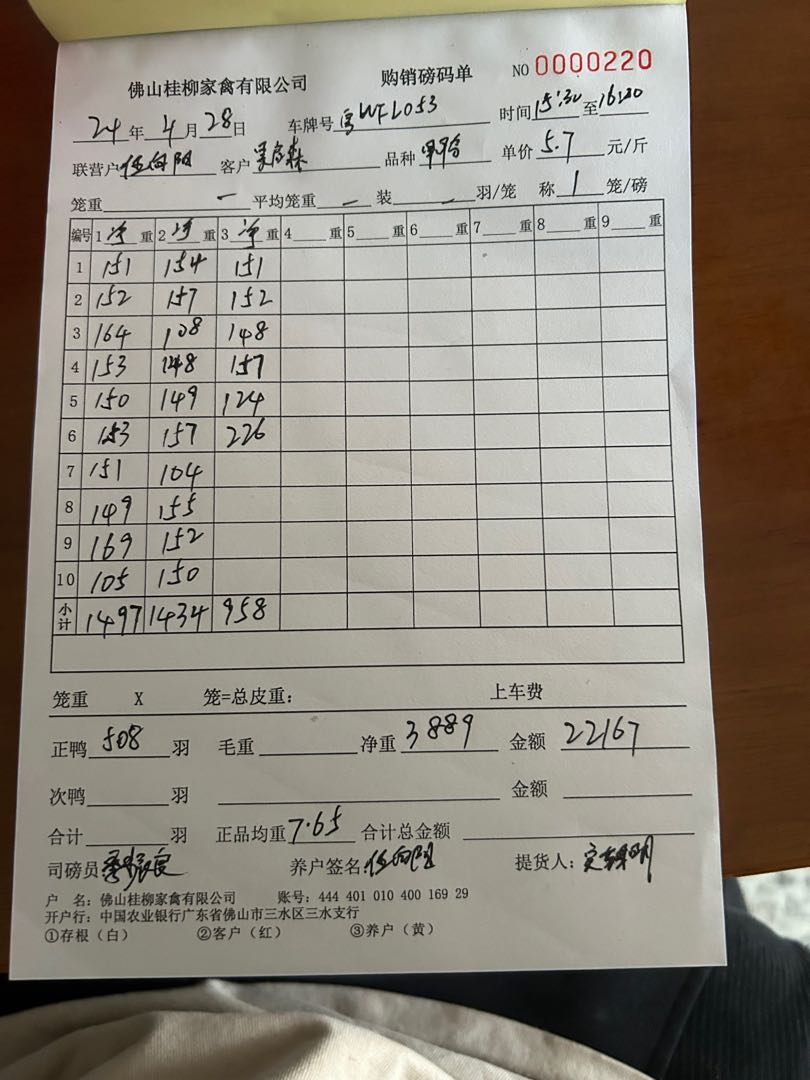 佛山桂柳家禽有限公司 购销磅码单 NO 0000220
24年4月28日 车牌号 WFL053 时间15:30至16:20
联营户伍向阳 客户 森 品种 单价5.7元/斤
笼重 一 平均笼重 一 装 一 羽/笼 称 1 笼/磅
编号 1净重 2净重 3净重 4 重 5 重 6 重 7 重 8 重 9 重
1 151 154 151
2 152 157 152
3 164 108 148
4 153 148 157
5 150 149 124
6 153 157 226
7 151 104
8 149 155
9 169 152
10 105 150
小计 1497 1434 958
笼重 X 笼=总皮重: 上车费
正鸭 508 羽 毛重 净重 3889 金额 22167
次鸭 羽 金额
合计 羽 正品均重 7.65 合计总金额
司磅员 养户签名:伍向阳 提货人: 明
户 名: 佛山桂柳家禽有限公司 账号: 444 401 010 400 169 29
开户行: 中国农业银行广东省佛山市三水区三水支行
①存根（白） ②客户（红） ③养户（黄）